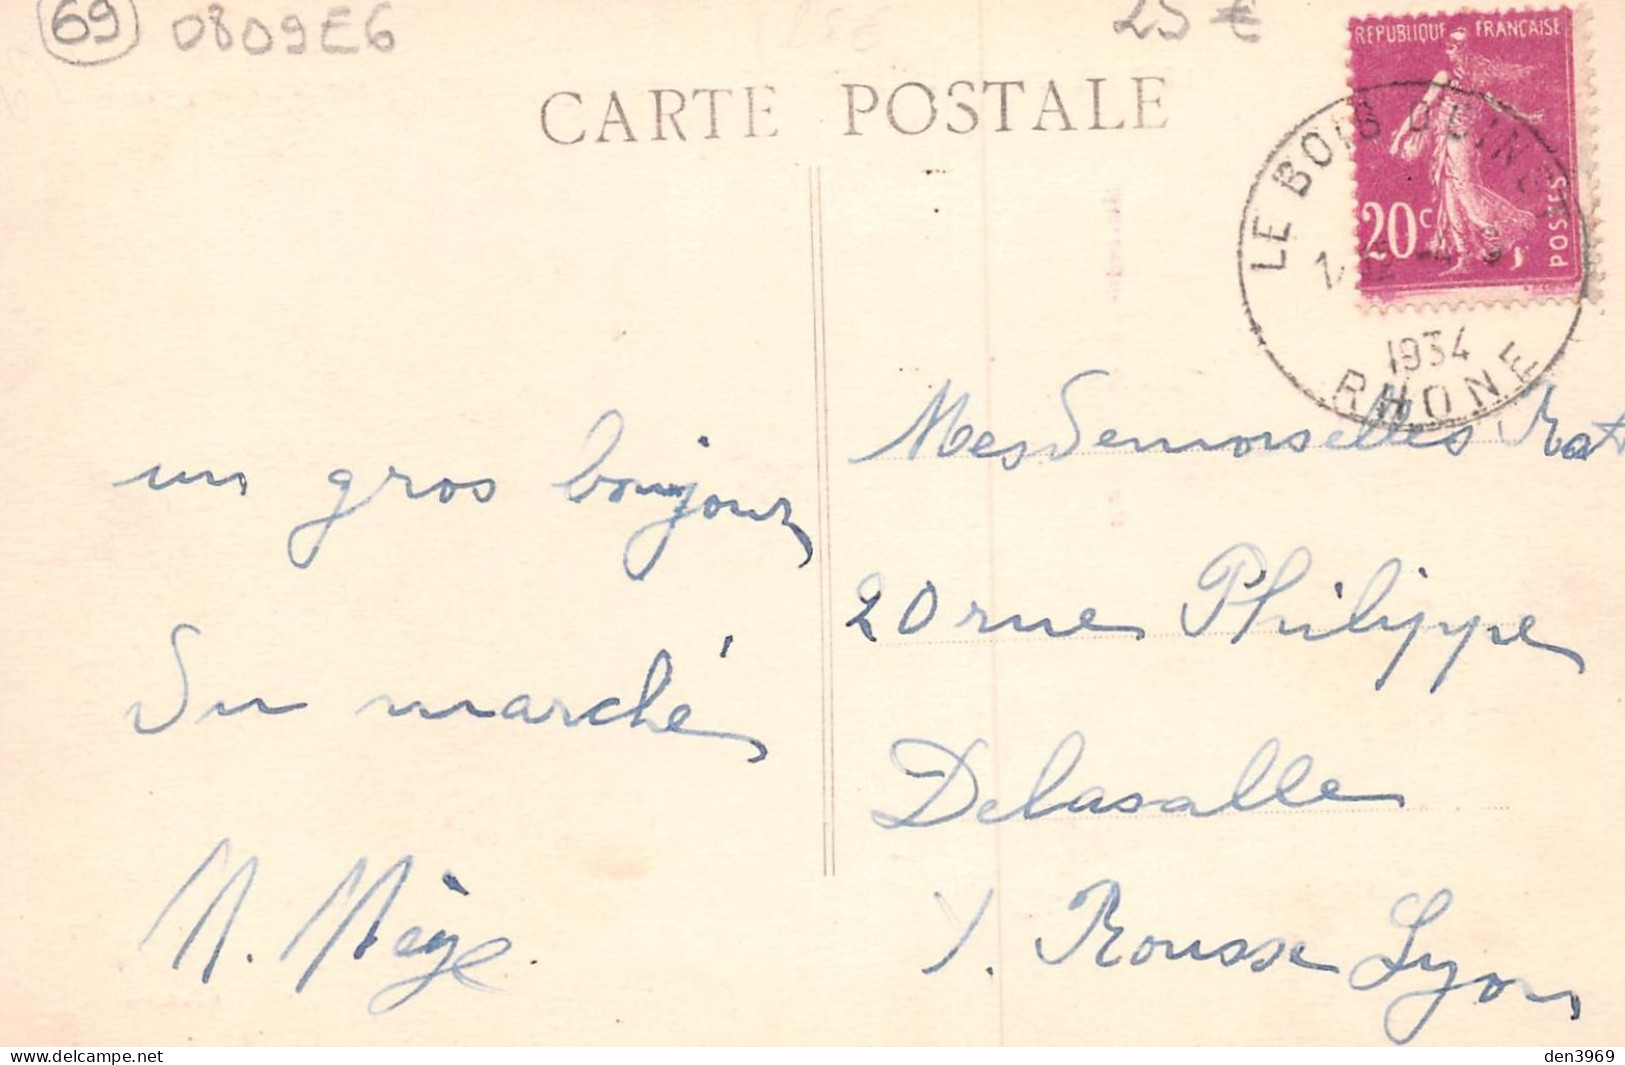 69 0809E6 25 €
CARTE POSTALE
REPUBLIQUE FRANCAISE
20c POSTES
LE BOIS D'OINGT
1934
RHONE
un gros bonjour
du marché
M. Mège
Mesdemoiselles Rat
20 rue Philippe
Delasalle
X. Rousse Lyon
den3969